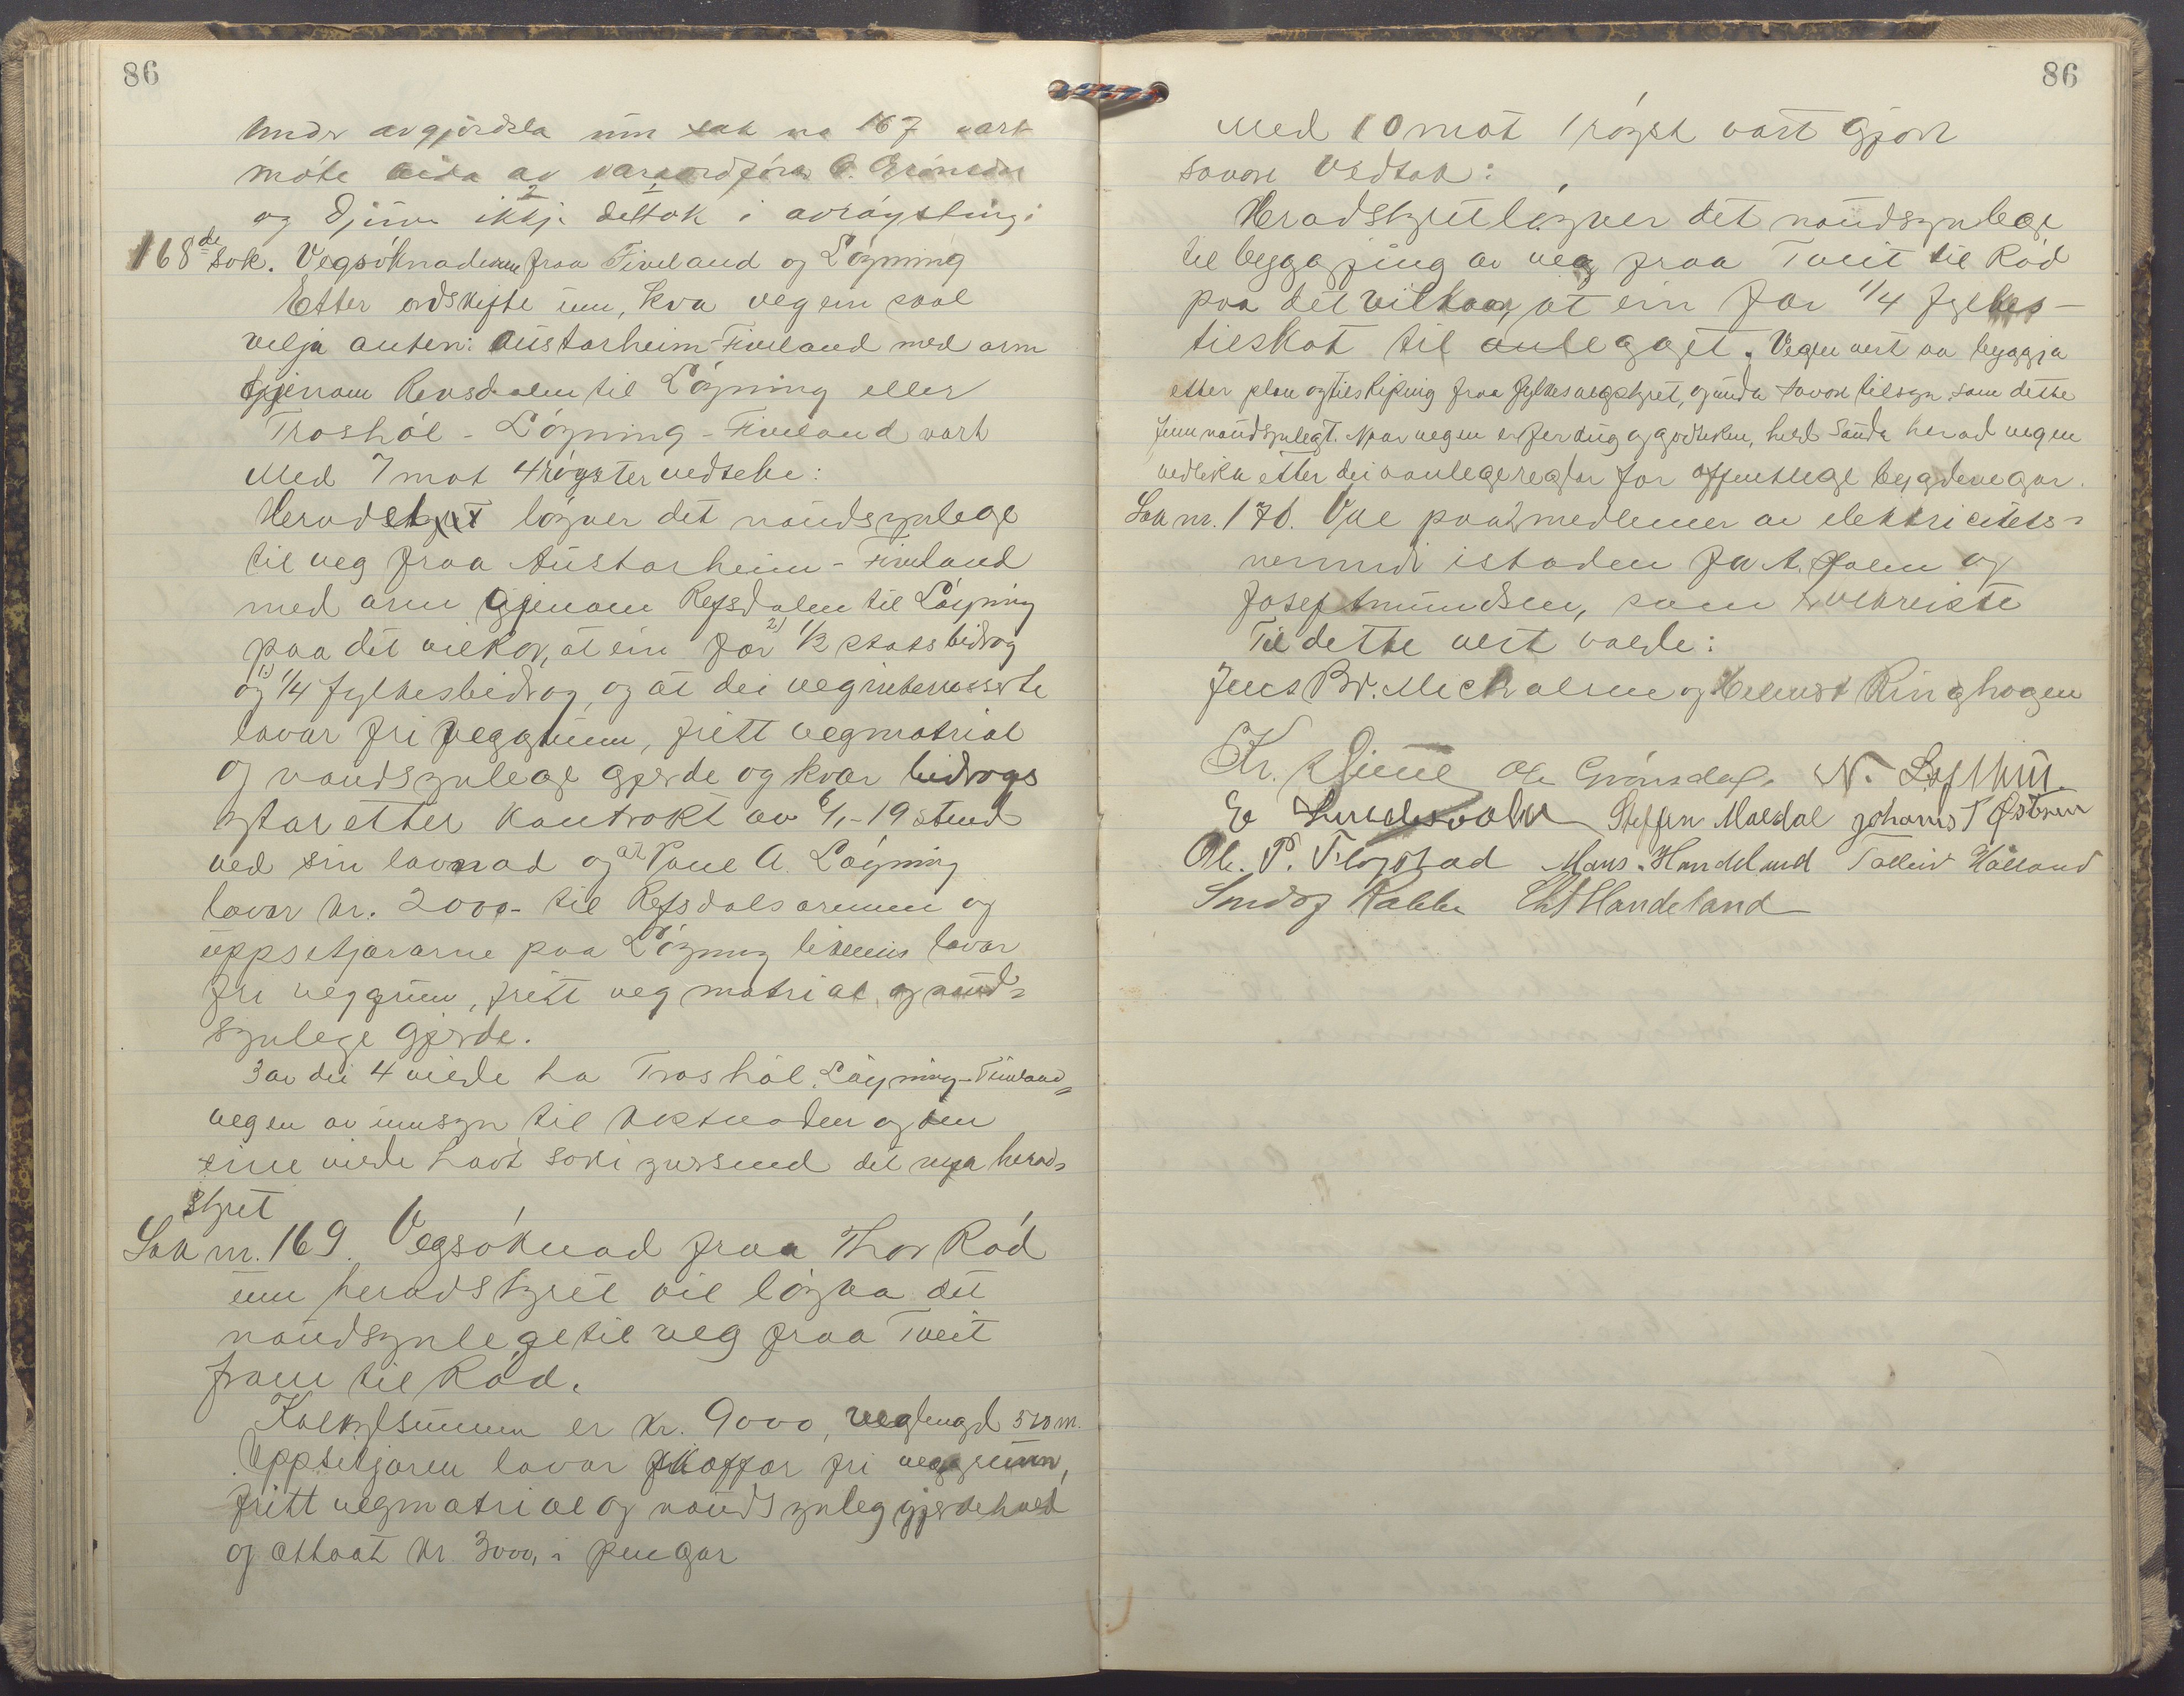 86
Under avgjerdsla um sak no 167 vart
møte leida av varaordførar O. Grønsdal
og Djuve ikkje deltok i avrøysting:
168de Sak. Vegsøknaderne fraa Fiveland og Løyning
Etter ordskifte um, kva veg ein skal
velja anten: Austarheim-Fiveland med arm
gjenom Refsdalen til Løyning eller
Troshøl - Løyning - Fiveland vart
Med 7 mot 4 røyster vedteke:
Heradstyret løyver det naudsynlege
til veg fraa Austarheim - Fiveland
med arm gjenom Refsdalen til Løyning
paa det vilkor, at ein faar 2) 1/2 statsbidrag
og 1) 1/4 fylkesbidrag, og at dei veginteresserte
lovar fri veggrunn, fritt vegmatrial
og naudsynlege gjerde og kvar bidrags
ytar etter kontrakt av 6/1-19 stend
ved sin lovnad og at Paul A. Løyning
lovar kr. 2000.- til Refsdalsarmen og
uppsitjararne paa Løyning likeeins lovar
fri veggrunn, fritt vegmatrial og naud-
synlege gjerde.
3 av dei 4 vilde ha Troshøl, Løyning-Fiveland-
vegen av umsyn til kostnaden og den
eine vilde havt saki yversend det nya herad-
styret
Sak nr. 169. Vegsøknad fraa Thor Rød
um heradstyret vil løyva det
naudsynlege til veg fraa Tveit
fram til Rød.
Kalkylsummen er kr. 9000, veglengd 520 m.
Uppsitjaren lovar skaffar fri veggrunn,
fritt vegmatrial og naudsynleg gjerdehald
og attaat kr. 3000, i pengar
86
Med 10 mot 1 røyst vart gjort
sovore vedtak:
Heradstyret løyver det naudsynlege
til byggjing av veg fraa Tveit til Rød
paa det vilkaar, at ein faar 1/4 fylkes-
tilskot til anlegget. Vegen vert aa byggja
etter plan og tilskiping fraa fylkesvegstyret, og unda sovore tilsyn som dette
finn naudsynlegt. Naar vegen er ferdug og godteken, held Sauda herad vegen
vedlika etter dei vanlege reglar for offentlege bygdevegar.
Sak nr. 170. Val paa 2 medlemer av elektricitets-
nemndi istaden for A. Holm og
Josef Amundsen, som er utreiste
Til dette vert valde:
Jens Br. Michalsen og Helmert Ringhagen
Kr. Djuve Ole Grønsdal. N. Løfthu
E Lindsvaln Steffen Maldal Johannes T Østrem
Ole. P. Fløgstad Mons. Handeland Tolleiv Haaland
Sando Rabbe Chr Handeland